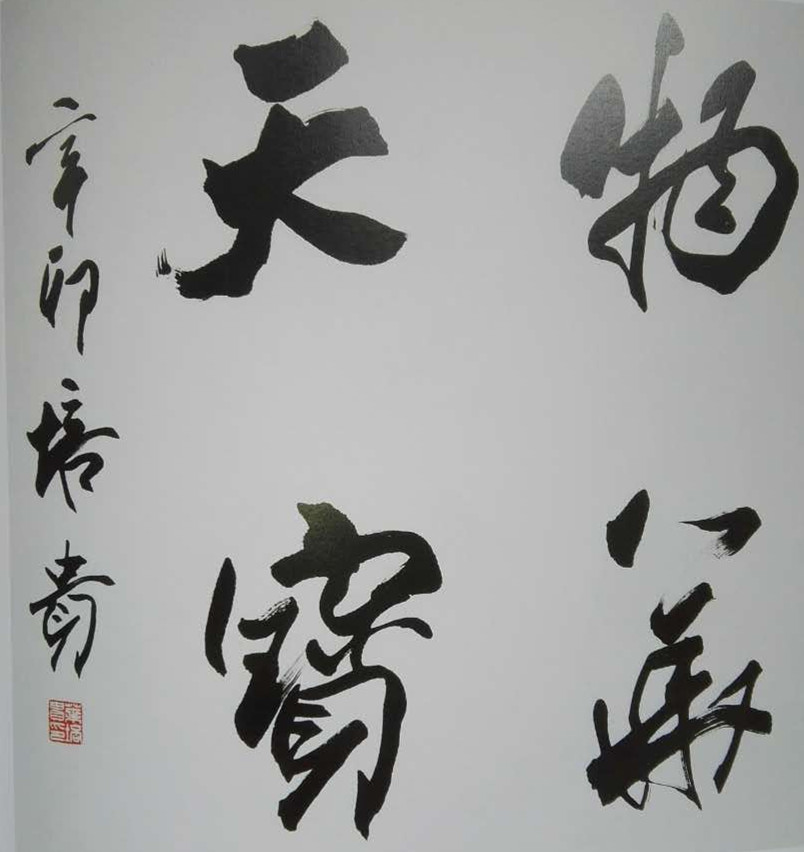 物华
天宝
辛卯培贵